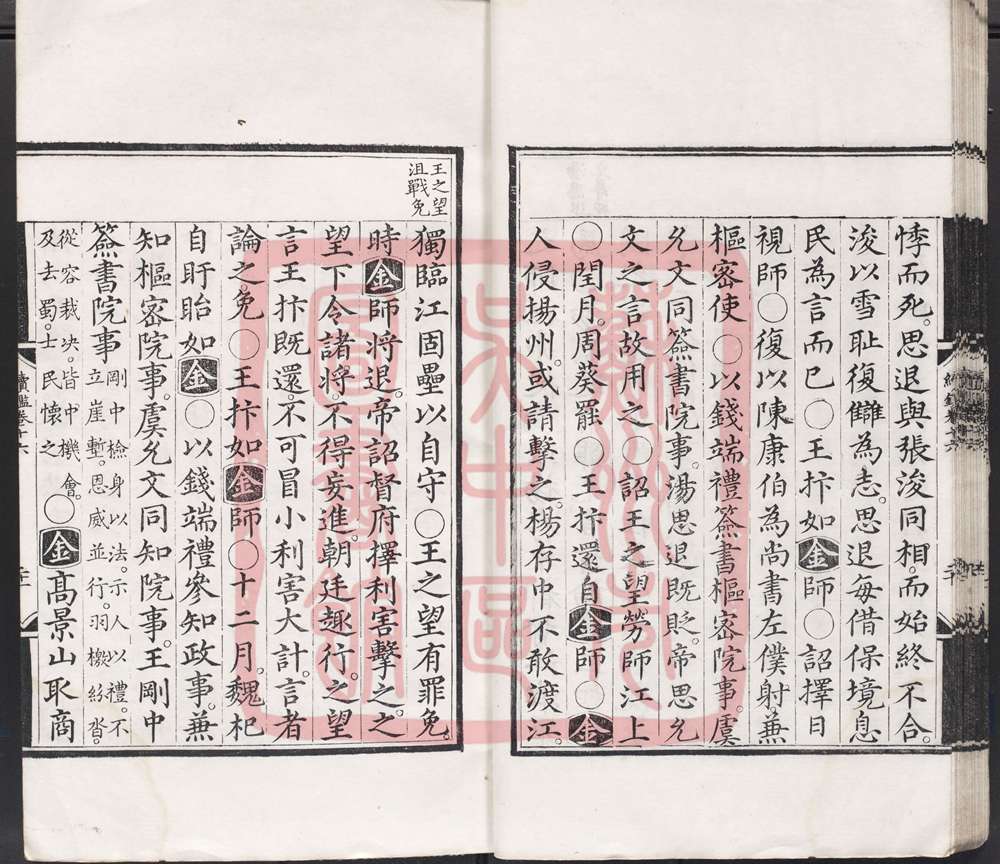 悸而死。思退與張浚同相。而始終不合。
浚以雪耻復讎為志。思退每借保境息
民為言而已〇王抃如金師〇詔擇日
視師〇復以陳康伯為尚書左僕射兼
樞密使〇以錢端禮簽書樞密院事。虞
允文同簽書院事。湯思退既貶。帝思允
文之言故用之〇詔王之望勞師江上
〇閏月。周葵罷〇王抃還自金師〇金
人侵揚州。或請擊之。楊存中不敢渡江。
王之望
沮戰免
獨臨江固壘以自守〇王之望有罪免。
時金師將退。帝詔督府擇利害擊之。之
望下令諸將。不得妄進。朝廷趣行。之望
言王抃既還。不可冒小利害大計。言者
論之。免〇王抃如金師〇十二月。魏杞
自盱眙如金〇以錢端禮參知政事。兼
知樞密院事。虞允文同知院事。王剛中
簽書院事剛中檢身以法。示人以禮。不
立崖塹。恩威並行。羽檄紛沓。
從容裁决。皆中機會。
及去蜀。士民懷之〇金高景山取商
續鑑卷十六
二十一
蘇州市
吳中區
圖書館